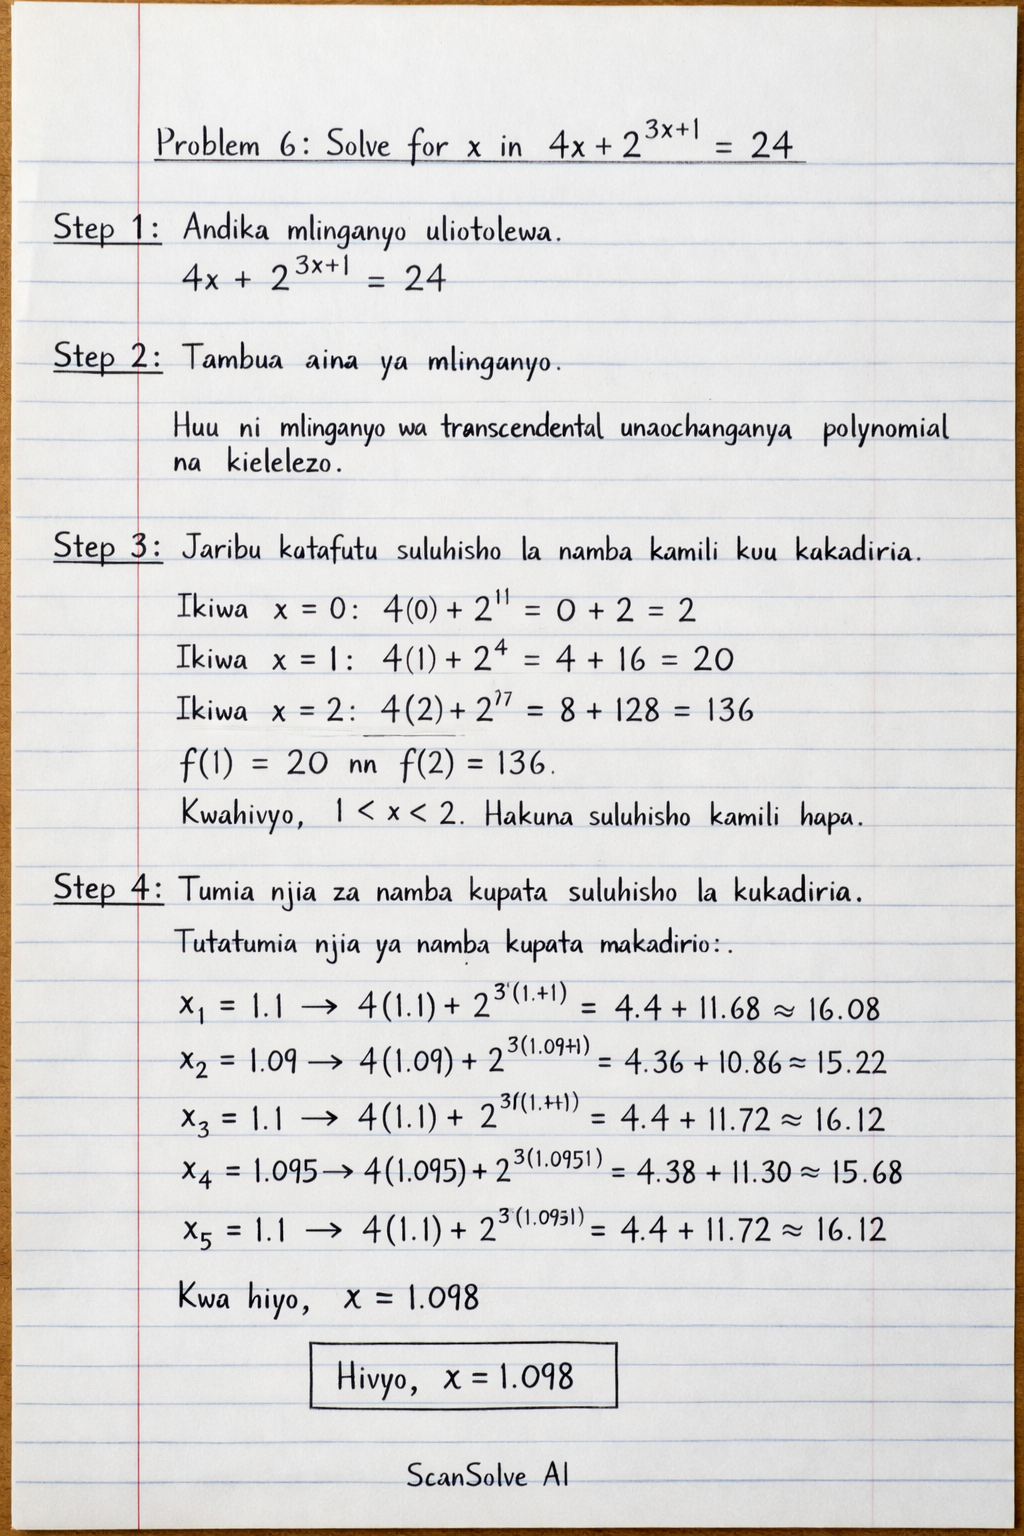 Problem 6: Solve for x in 4x + 2^{3x+1} = 24
Step 1: Andika mlinganyo uliotolewa.
4x + 2^{3x+1} = 24
Step 2: Tambua aina ya mlinganyo.
Huu ni mlinganyo wa transcendental unaochanganya polynomial
na kielelezo.
Step 3: Jaribu katafutu suluhisho la namba kamili kuu kakadiria.
Ikiwa x = 0: 4(0) + 2^{11} = 0 + 2 = 2
Ikiwa x = 1: 4(1) + 2^4 = 4 + 16 = 20
Ikiwa x = 2: 4(2) + 2^{77} = 8 + 128 = 136
f(1) = 20 nn f(2) = 136.
Kwahivyo, 1 < x < 2. Hakuna suluhisho kamili hapa.
Step 4: Tumia njia za namba kupata suluhisho la kukadiria.
Tutatumia njia ya namba kupata makadirio:.
x₁ = 1.1 → 4(1.1) + 2^{3'(1.+1)} = 4.4 + 11.68 ≈ 16.08
x₂ = 1.09 → 4(1.09) + 2^{3(1.09+1)} = 4.36 + 10.86 ≈ 15.22
x₃ = 1.1 → 4(1.1) + 2 = 4.4 + 11.72 ≈ 16.12
x₄ = 1.095 → 4(1.095) + 2^{3(1.0951)} = 4.38 + 11.30 ≈ 15.68
x₅ = 1.1 → 4(1.1) + 2 = 4.4 + 11.72 ≈ 16.12
Kwa hiyo, x = 1.098
Hivyo, x = 1.098
ScanSolve AI